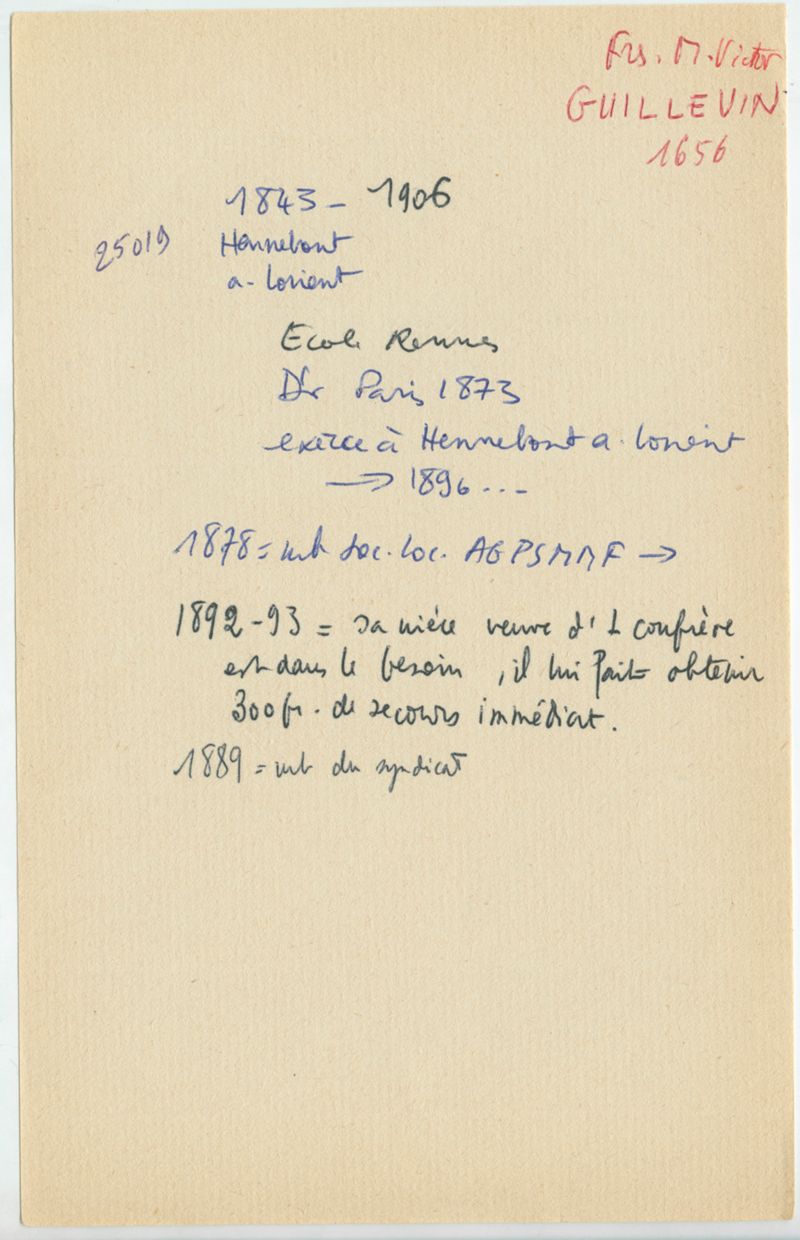 Frs. M. Victor
GUILLEVIN
1656
1843 - 1906
25019 Hennebont
a. Lorient
Ecole Rennes
Dr Paris 1873
exerce à Hennebont a. Lorient
→ 1896...
1878 = mb Soc. Loc. AGPSMMF →
1892-93 = sa nièce veuve d'1 confrère
est dans le besoin, il lui fait obtenir
300 fr. de secours immédiat.
1889 = mb du syndicat